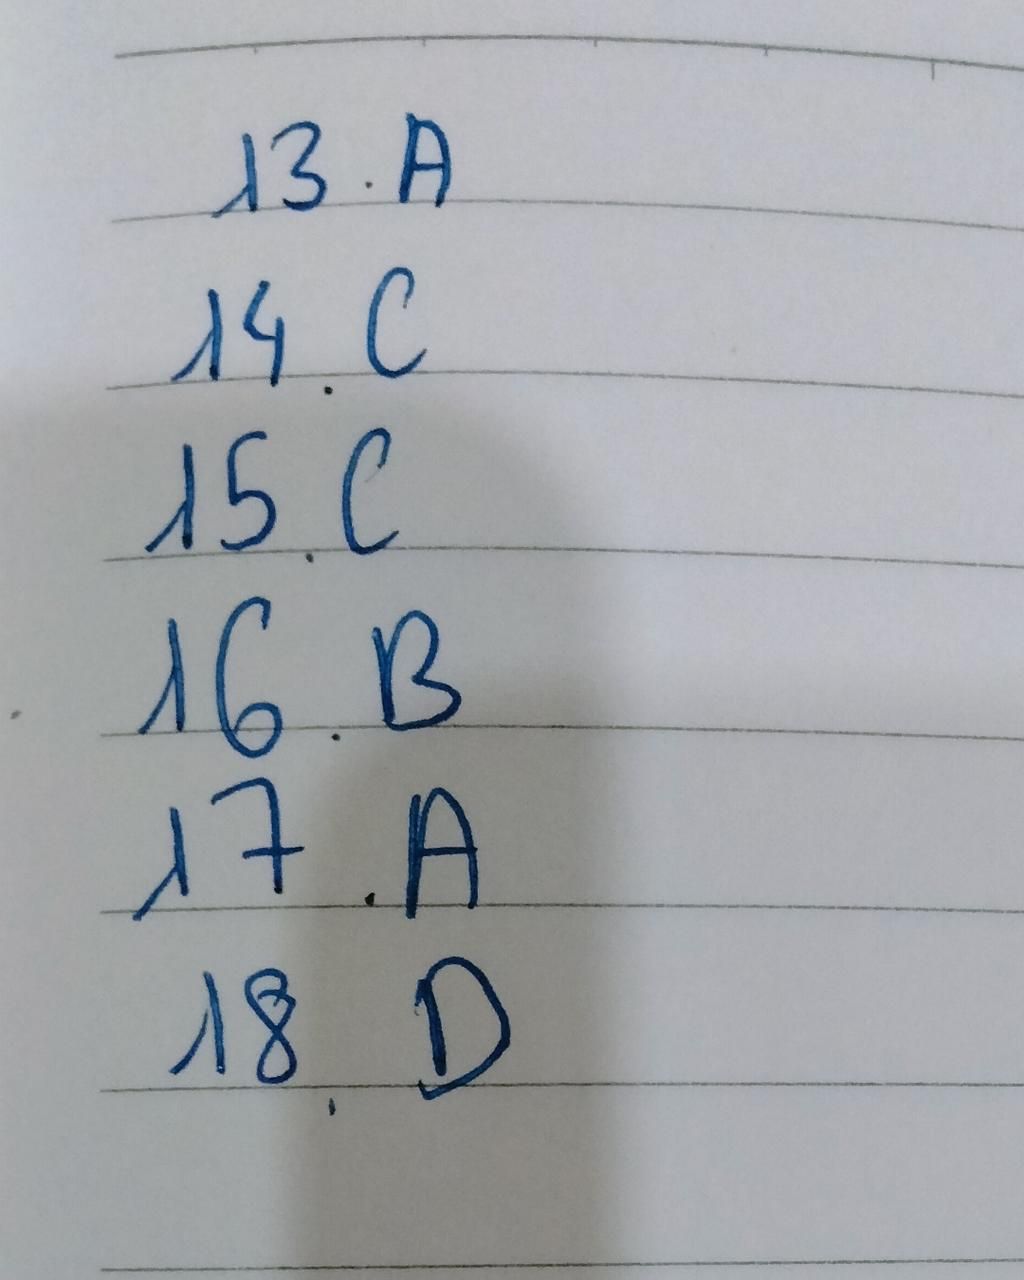 13. A
14. C
15. C
16. B
17. A
18. D